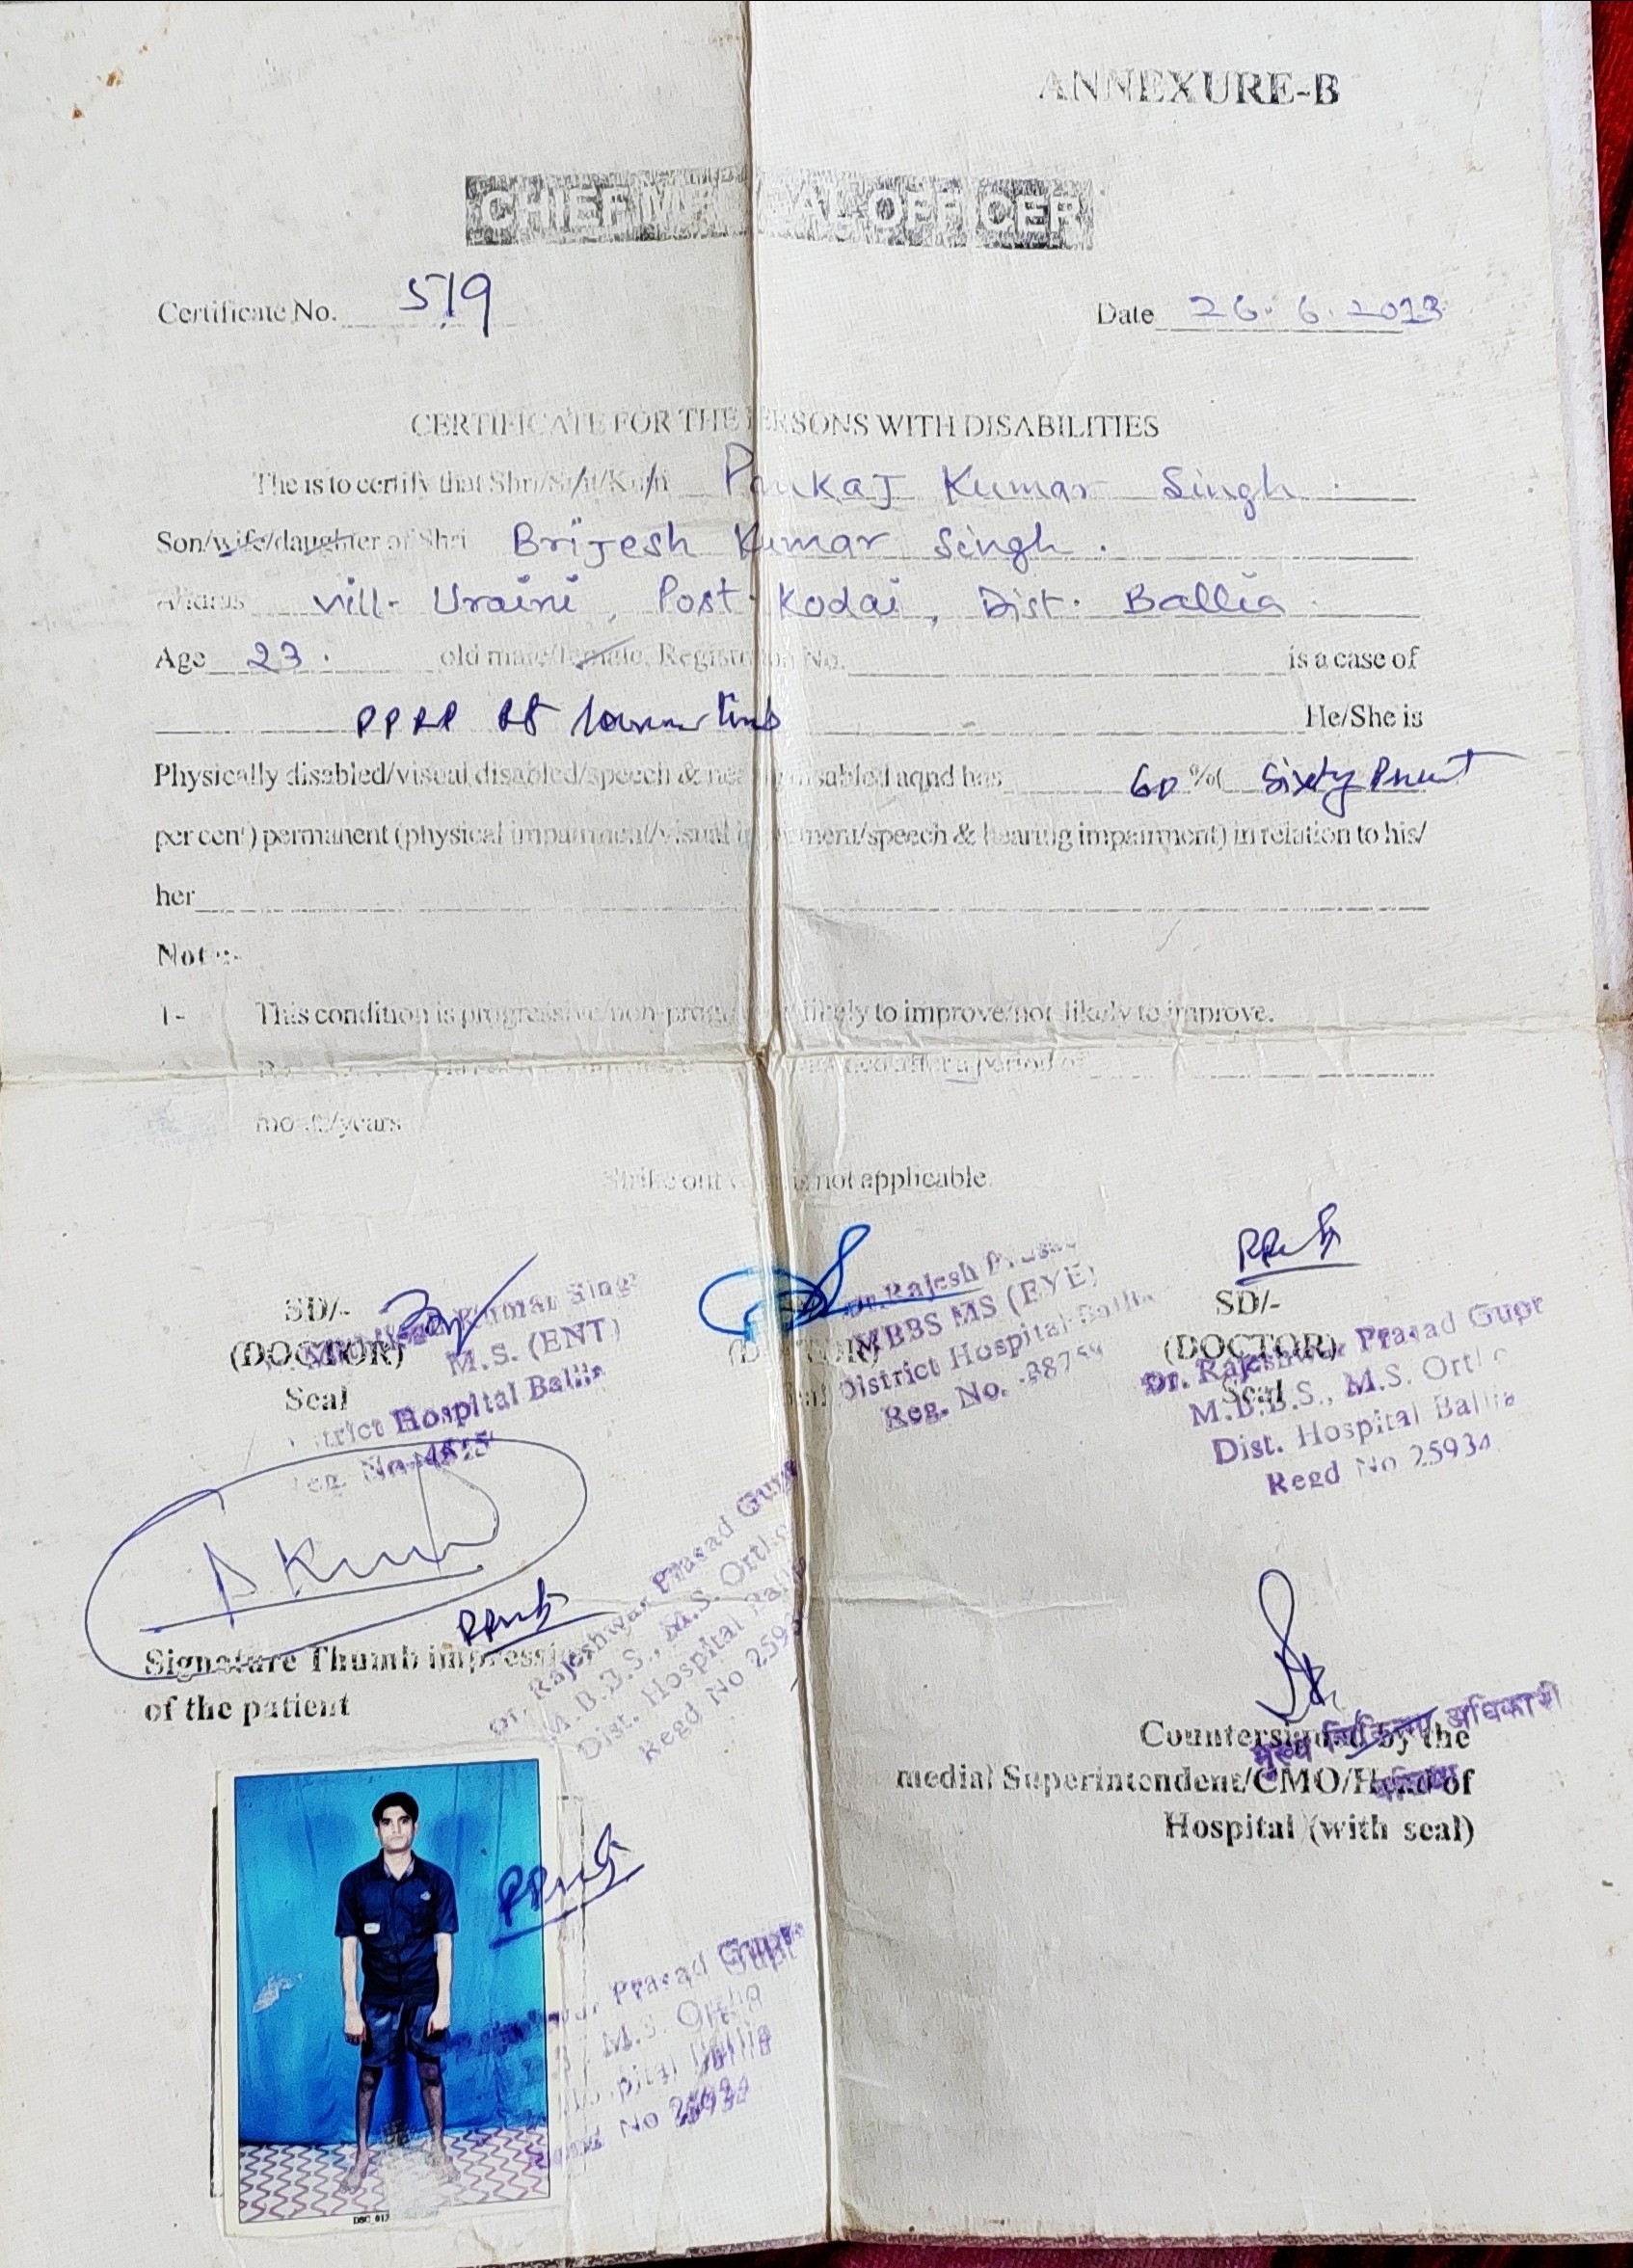 ANNEXURE-B
CHIEF MEDICAL OFFICER
Certificate No. 519
Date 26.6.2013
CERTIFICATE FOR THE PERSONS WITH DISABILITIES
The is to certify that Shri/Smt/Kum Pankaj Kumar Singh.
Son/wife/daughter of Shri Brijesh Kumar Singh.
Address vill- Uraini, Post- Kodai, Dist. Ballia
Age 23. old male/female, Registration No. is a case of
PPRP Rt lower limb He/She is
Physically disabled/visual disabled/speech & hearing disabled aqnd has 60 %( Sixty Percent
per cent) permanent (physical impairment/visual impairment/speech & hearing impairment) in relation to his/
her
Note:-
1- This condition is progressive/non-progressive/likely to improve/not likely to improve.
after a period of
month/years
Strike out is not applicable.
SD/-
(DOCTOR)
Seal
Kumar Singh
M.S. (ENT)
District Hospital Ballia
Reg. No.
(DOCTOR)
Seal
Dr. Rajesh Prasad
MBBS MS (EYE)
District Hospital Ballia
Reg. No.
SD/-
(DOCTOR)
Seal
Dr. Rajeshwar Prasad Gupt
M.B.B.S., M.S. Ortho
Dist. Hospital Ballia
Regd No 25934
Signature Thumb impression
of the patient
Dr. Rajeshwar Prasad Gupt
M.B.B.S., M.S. Ortho
Dist. Hospital Ballia
Regd No 2593
Countersigned by the
medial Superintendent/CMO/Head of
Hospital (with seal)
मुख्य चिकित्सा अधिकारी
Prasad Gupt
M.S. Ortho
Hospital Ballia
No 25934